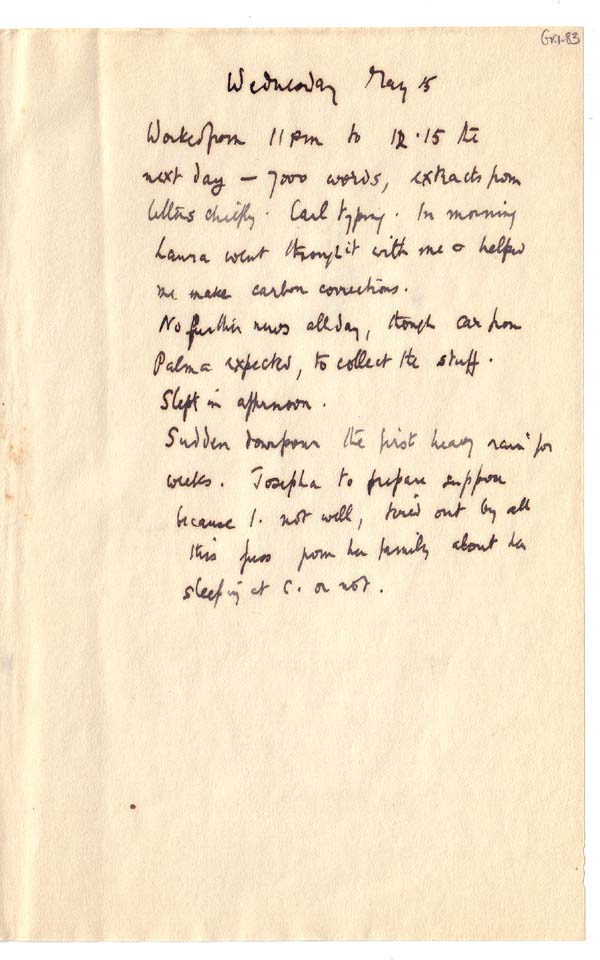 GRI-83
Wednesday May 15
Worked from 11 pm to 12.15 the
next day — 7000 words, extracts from
letters chiefly. Carl typing. In morning
Laura went through it with me & helped
me make carbon corrections.
No further news all day, though car from
Palma expected, to collect the stuff.
Slept in afternoon.
Sudden downpour the first heavy rain for
weeks. Josepha to prepare supper
because I. not well, tired out by all
this fuss from her family about her
sleeping at C. or not.